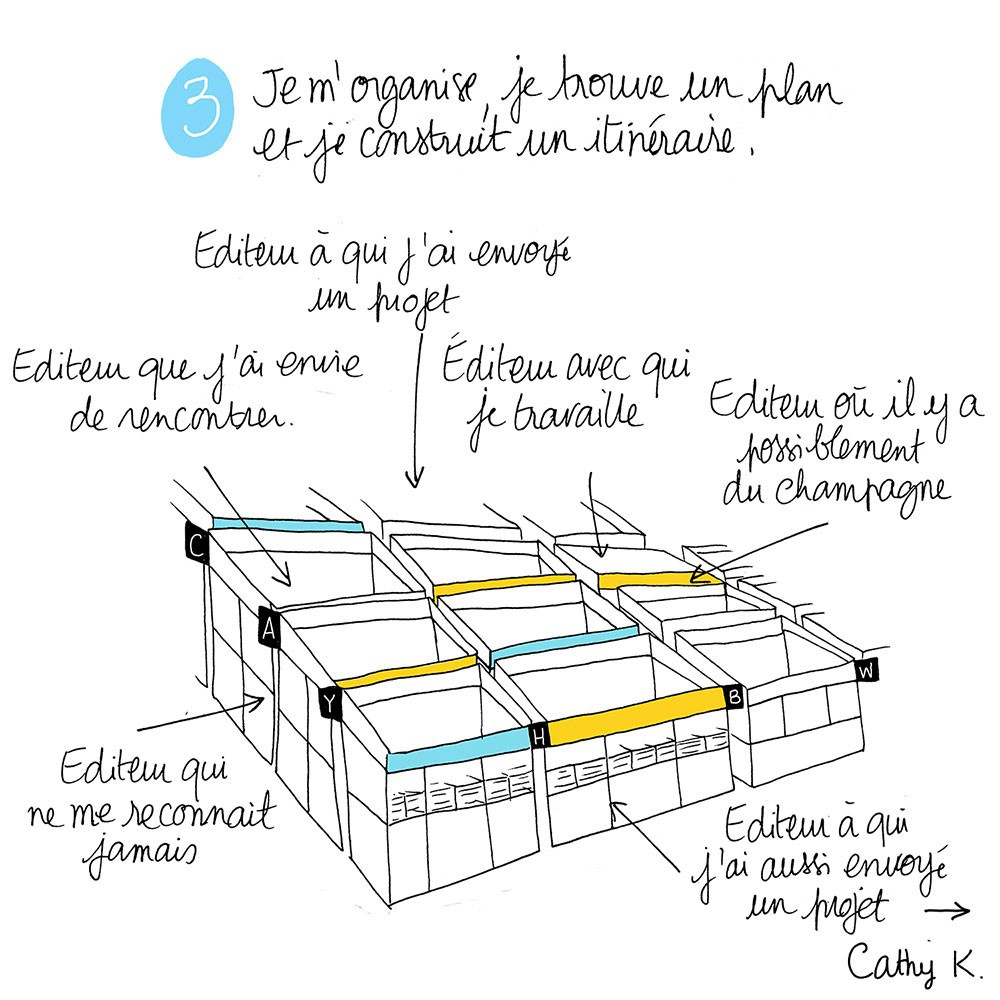 3
Je m'organise, je trouve un plan
et je construit un itinéraire.
Editeur à qui j'ai envoyé
un projet
Editeur que j'ai envie
de rencontrer.
Éditeur avec qui
je travaille
Editeur où il y a
possiblement
du champagne
C
A
Y
H
B
W
Editeur qui
ne me reconnait
jamais
Editeur à qui
j'ai aussi envoyé
un projet
Cathy K.